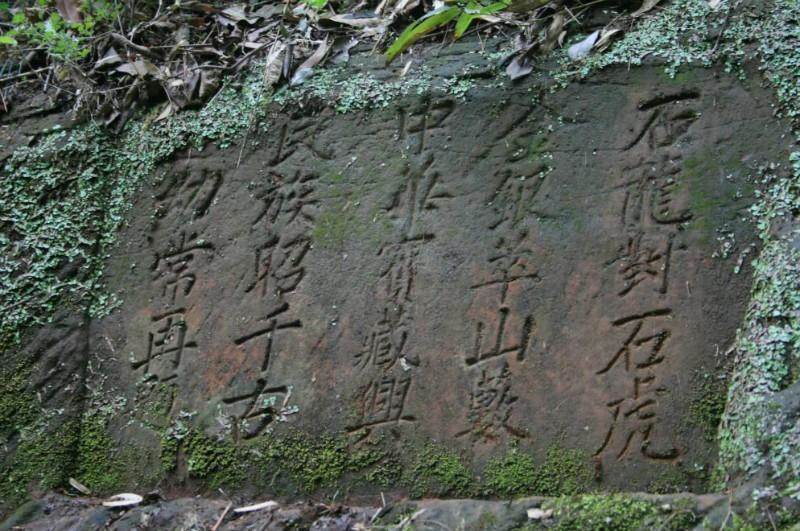 石龍對石虎
金銀萃山藪
中華寶藏興
民族昭千古
物常再